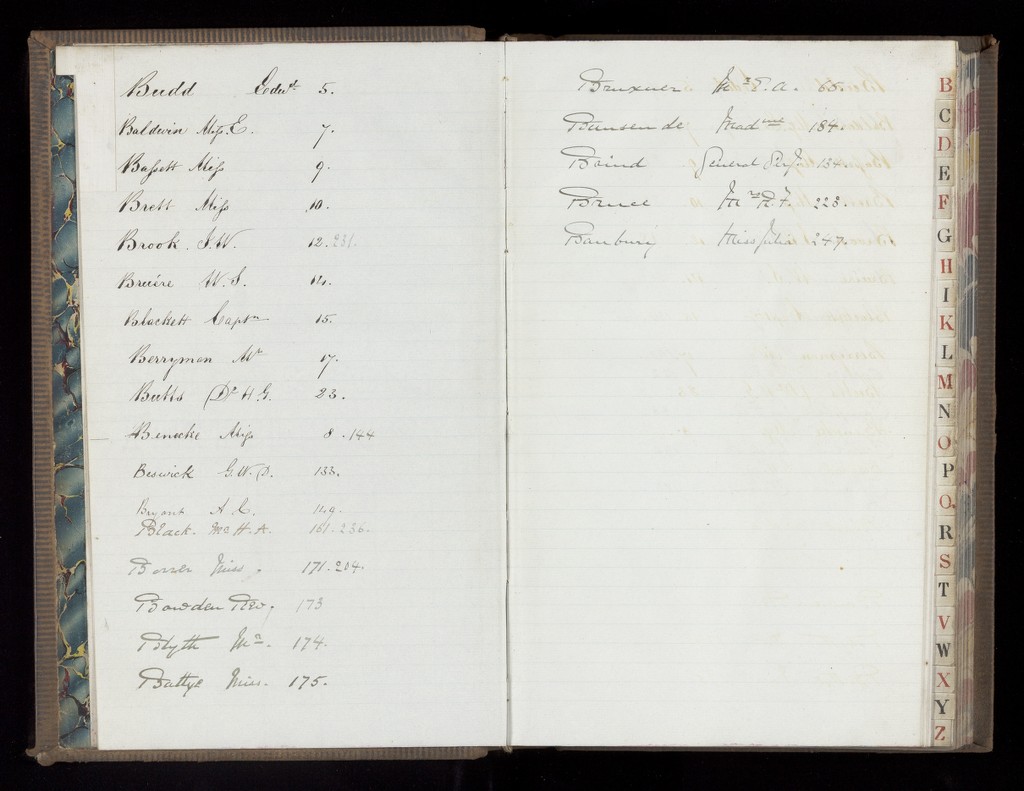 Budd Edwd 5.
Baldwin Miss. E. 7.
Bassett Miss 9.
Brett Miss 10.
Brook. J. W. 12. 231.
Bruère W. S. 14.
Blackett Captn 15.
Berryman Mr 17.
Butts Dr H. G. 23.
Benecke Miss 8. 144
Beswick G. W. D. 133.
Bryant A. C. 149.
Black. H. A. 161. 236.
Borrer Miss. 171. 204.
Bowden Rev. 173
Blyth Mr. 174.
Battye Miss. 175.
Bruxner E. A. 85.
Bunsen de Madme 184.
General 134.
Bruce Mrs R. F. 223.
Banbury Miss Julia 247.
B
C
D
E
F
G
H
I
K
L
M
N
O
P
Q
R
S
T
V
W
X
Y
Z